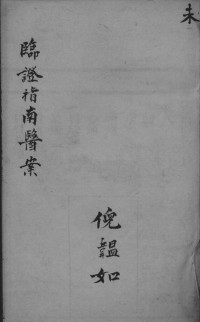 未
臨證指南醫案
倪韞如